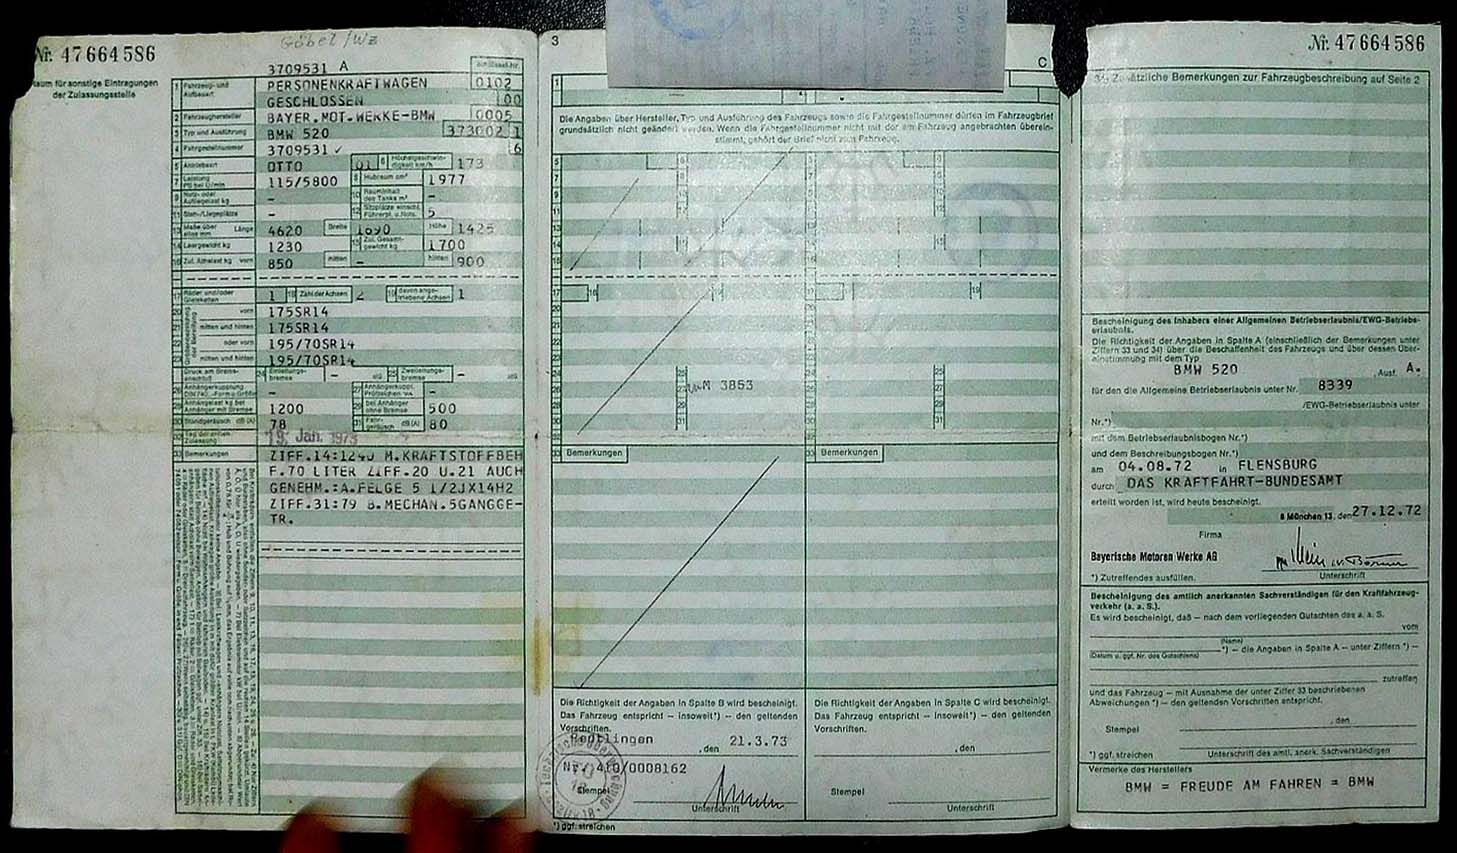 Nr. 47 664 586
Raum für sonstige Eintragungen
der Zulassungsstelle
Göbel / Wz
3709531 A
1 Fahrzeug- und Aufbauart PERSONENKRAFTWAGEN 0102
GESCHLOSSEN 00
2 Fahrzeughersteller BAYER.MOT.WERKE-BMW 0005
3 Typ und Ausführung BMW 520 373002 1
4 Fahrgestellnummer 3709531 ✓ 6
5 Antriebsart OTTO 01 6 Höchstgeschwindigkeit km/h 173
7 Leistung PS bei U/min 115/5800 8 Hubraum cm³ 1977
9 Nutz- oder Aufliegelast kg – 10 Rauminhalt des Tanks m³ –
11 Steh-/Liegeplätze – 12 Sitzplätze einschl. Führerpl. u. Nots. 5
13 Maße über alles mm Länge 4620 Breite 1690 Höhe 1425
14 Leergewicht kg 1230 15 Zul. Gesamtgewicht kg 1700
16 Zul. Achslast kg vorn 850 mitten – hinten 900
17 Räder und/oder Gleisketten 1 18 Zahl der Achsen 2 19 davon angetriebene Achsen 1
20 vorn 175SR14
21 mitten und hinten 175SR14
22 oder vorn 195/70SR14
23 mitten und hinten 195/70SR14
Druck am Bremsanschluß 24 Einleitungsbremse – 25 Zweileitungsbremse –
26 Anhängerkupplung DIN 740.. Form u. Größe – 27 Anhängerkuppl. Prüfzeichen –
28 Anhängelast kg bei Anhänger mit Bremse 1200 29 bei Anhänger ohne Bremse 500
30 Standgeräusch dB (A) 78 31 Fahrgeräusch dB (A) 80
32 Tag der ersten Zulassung 19. Jan. 1973
33 Bemerkungen ZIFF.14:1240 M.KRAFTSTOFFBEH
F.70 LITER ZIFF.20 U.21 AUCH
GENEHM.:A.FELGE 5 1/2JX14H2
ZIFF.31:79 B.MECHAN.5GANGGE-
TR.
3
C
Die Angaben über Hersteller, Typ und Ausführung des Fahrzeugs sowie die Fahrgestellnummer dürfen im Fahrzeugbrief
grundsätzlich nicht geändert werden. Wenn die Fahrgestellnummer nicht mit der am Fahrzeug angebrachten überein-
stimmt, gehört der Brief nicht zum Fahrzeug.
M 3853
33 Bemerkungen
33 Bemerkungen
Die Richtigkeit der Angaben in Spalte B wird bescheinigt.
Das Fahrzeug entspricht — insoweit*) — den geltenden
Vorschriften.
Reutlingen , den 21.3.73
Nr. 410/0008162
Stempel
Unterschrift
*) ggf. streichen
Die Richtigkeit der Angaben in Spalte C wird bescheinigt.
Das Fahrzeug entspricht — insoweit*) — den geltenden
Vorschriften.
, den
Stempel
Unterschrift
Nr. 47 664 586
Zusätzliche Bemerkungen zur Fahrzeugbeschreibung auf Seite 2
Bescheinigung des Inhabers einer Allgemeinen Betriebserlaubnis/EWG-Betriebs-
erlaubnis.
Die Richtigkeit der Angaben in Spalte A (einschließlich der Bemerkungen unter
Ziffern 33 und 34) über die Beschaffenheit des Fahrzeugs und über dessen Über-
einstimmung mit dem Typ
BMW 520 , Ausf. A.
für den die Allgemeine Betriebserlaubnis unter Nr. 8339
/EWG-Betriebserlaubnis unter
Nr.*)
mit dem Betriebserlaubnisbogen Nr.*)
und dem Beschreibungsbogen Nr.*)
am 04.08.72 in FLENSBURG
durch DAS KRAFTFAHRT-BUNDESAMT
erteilt worden ist, wird heute bescheinigt.
8 München 13, den 27.12.72
Firma
Bayerische Motoren Werke AG
*) Zutreffendes ausfüllen. Unterschrift
Bescheinigung des amtlich anerkannten Sachverständigen für den Kraftfahrzeug-
verkehr (a. a. S.).
Es wird bescheinigt, daß — nach dem vorliegenden Gutachten des a. a. S.
vom
(Name)
*) — die Angaben in Spalte A — unter Ziffern *) —
(Datum u. ggf. Nr. des Gutachtens)
zutreffen
und das Fahrzeug — mit Ausnahme der unter Ziffer 33 beschriebenen
Abweichungen *) — den geltenden Vorschriften entspricht.
, den
Stempel
*) ggf. streichen Unterschrift des amtl. anerk. Sachverständigen
Vermerke des Herstellers
BMW = FREUDE AM FAHREN = BMW